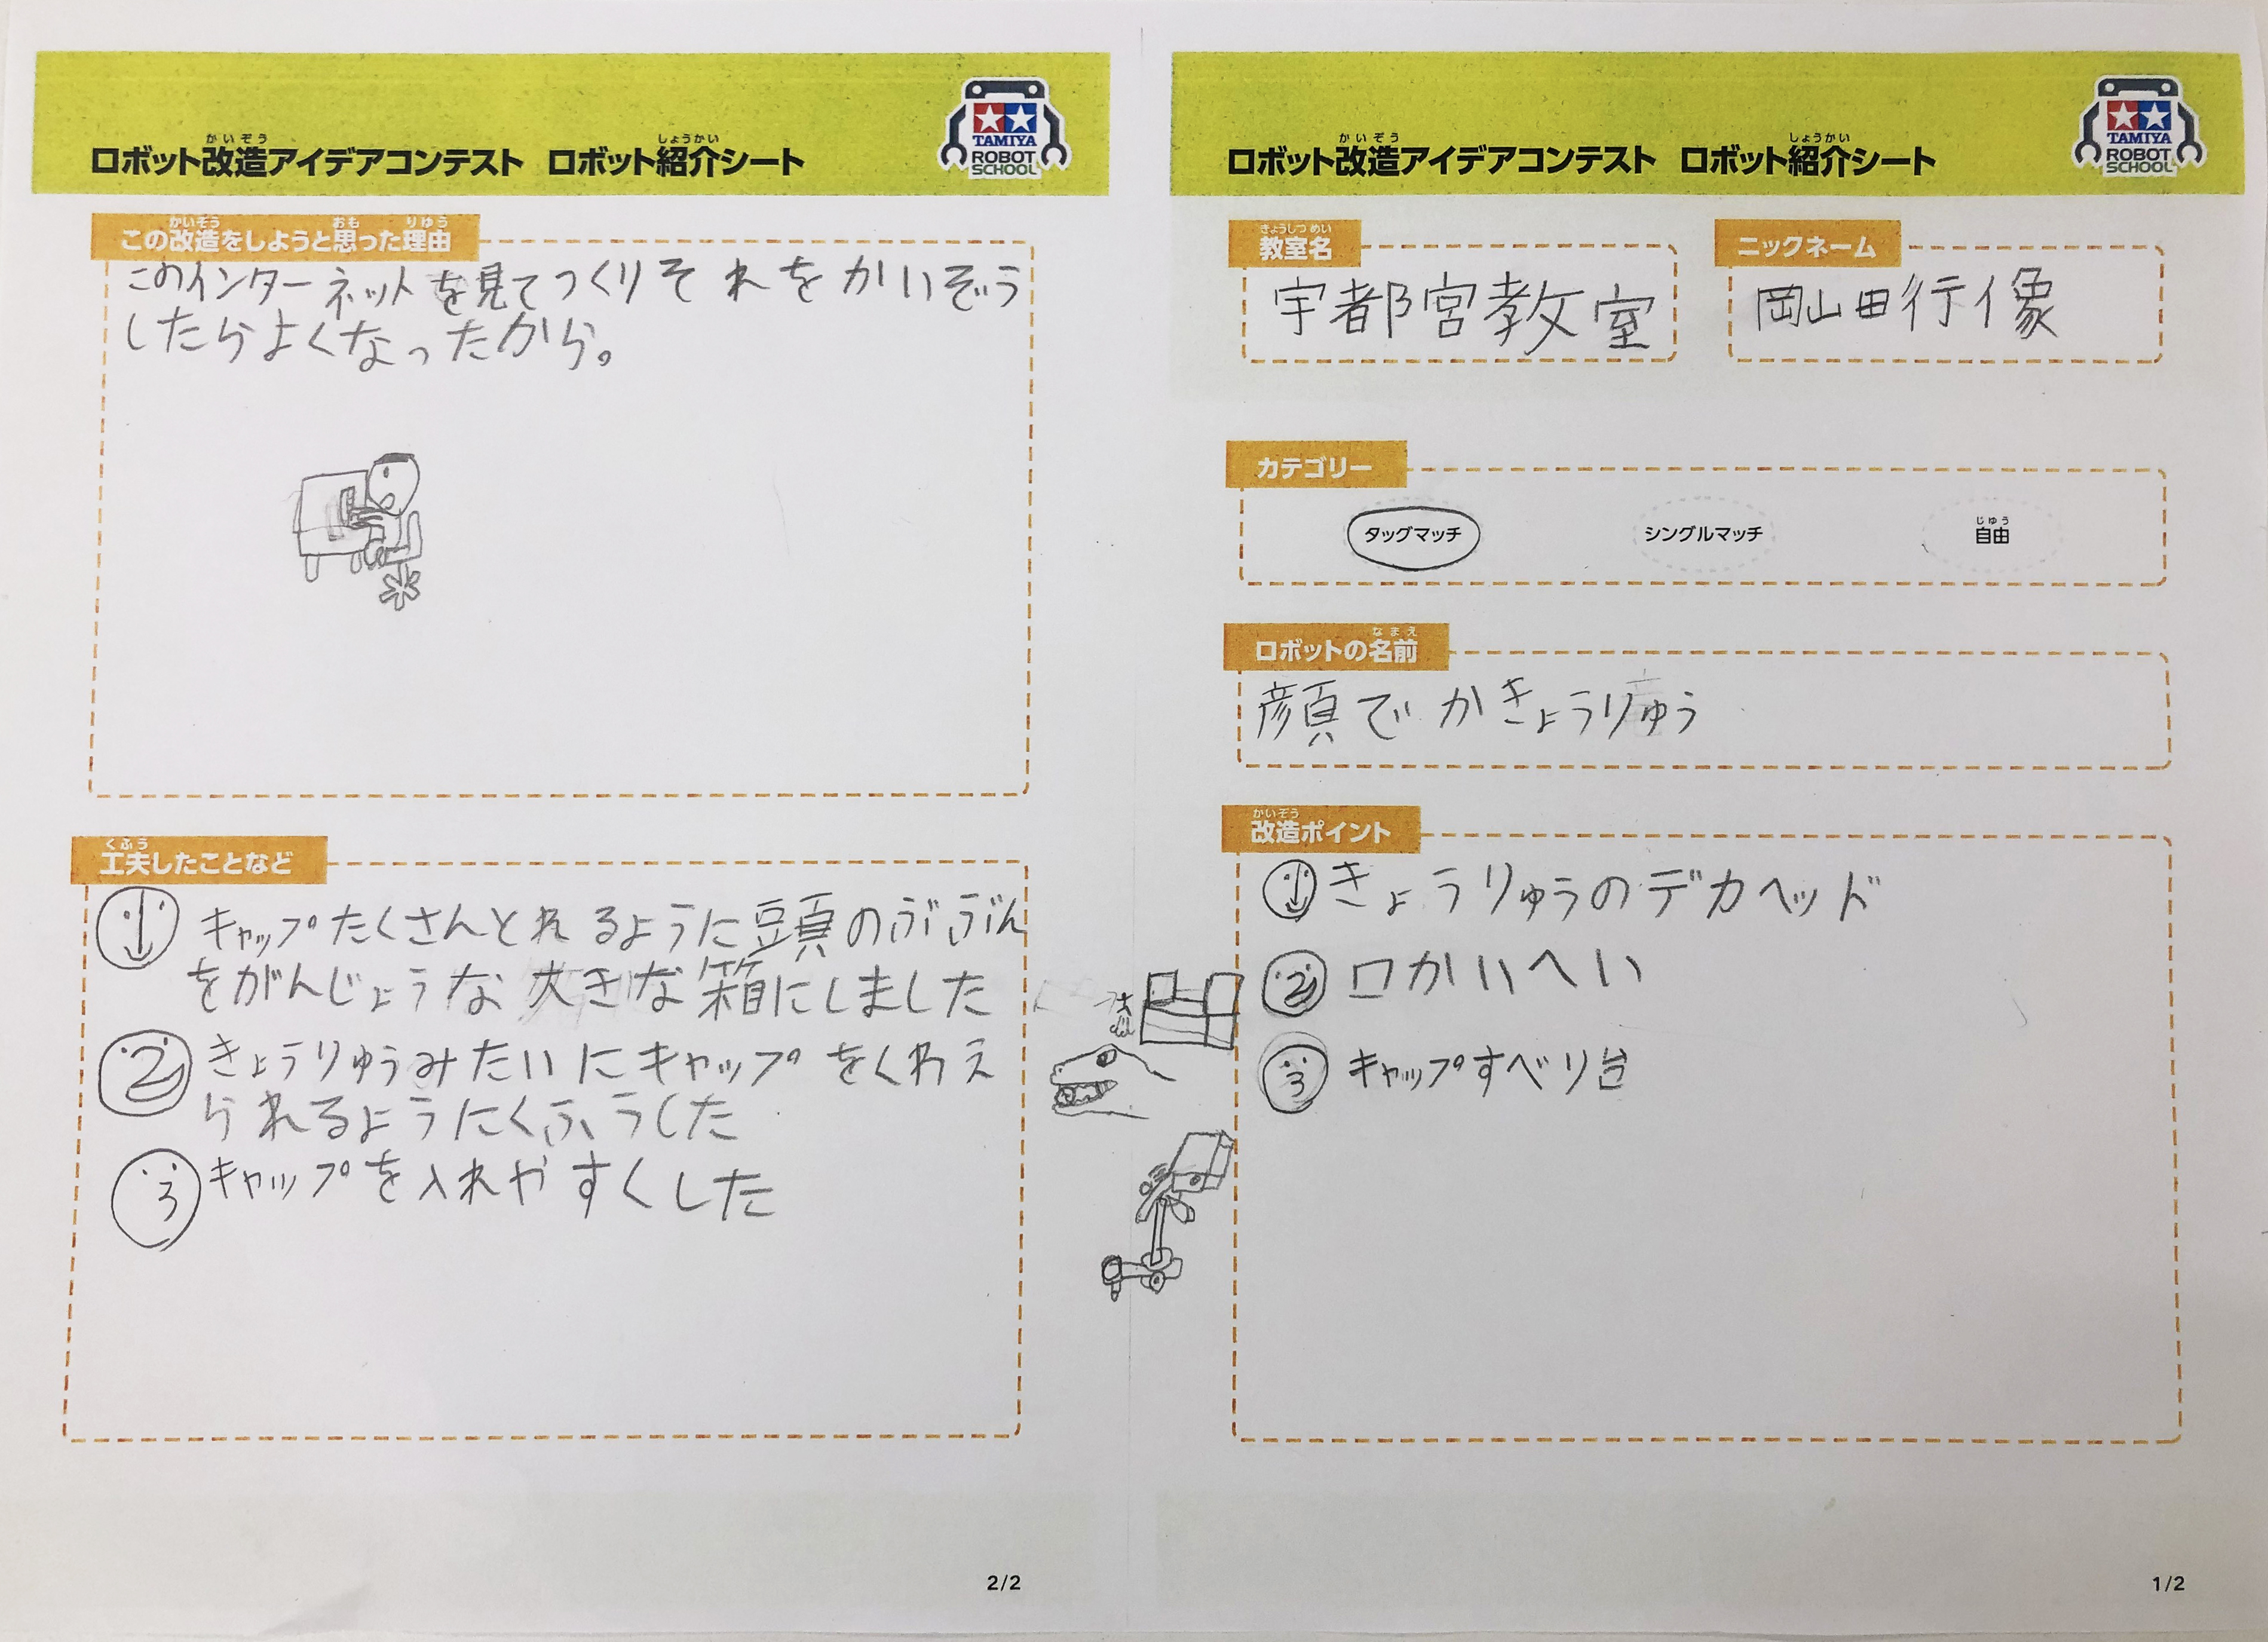 ロボット改造アイデアコンテスト ロボット紹介シート
かいぞう
しょうかい
TAMIYA
ROBOT
SCHOOL
教室名
きょうしつ めい
宇都宮教室
ニックネーム
岡山田行像
カテゴリー
タッグマッチ
シングルマッチ
自由
じゆう
ロボットの名前
なまえ
顔でかきょうりゅう
改造ポイント
かいぞう
1 きょうりゅうのデカヘッド
2 口かいへい
3 キャップすべり台
1/2
ロボット改造アイデアコンテスト ロボット紹介シート
かいぞう
しょうかい
TAMIYA
ROBOT
SCHOOL
この改造をしようと思った理由
かいぞう
おも
りゆう
このインターネットを見てつくりそれをかいぞう
したらよくなったから。
工夫したことなど
くふう
1 キャップたくさんとれるように頭のぶぶん
をがんじょうな大きな箱にしました
2 きょうりゅうみたいにキャップをくわえ
られるようにくふうした
3 キャップを入れやすくした
2/2